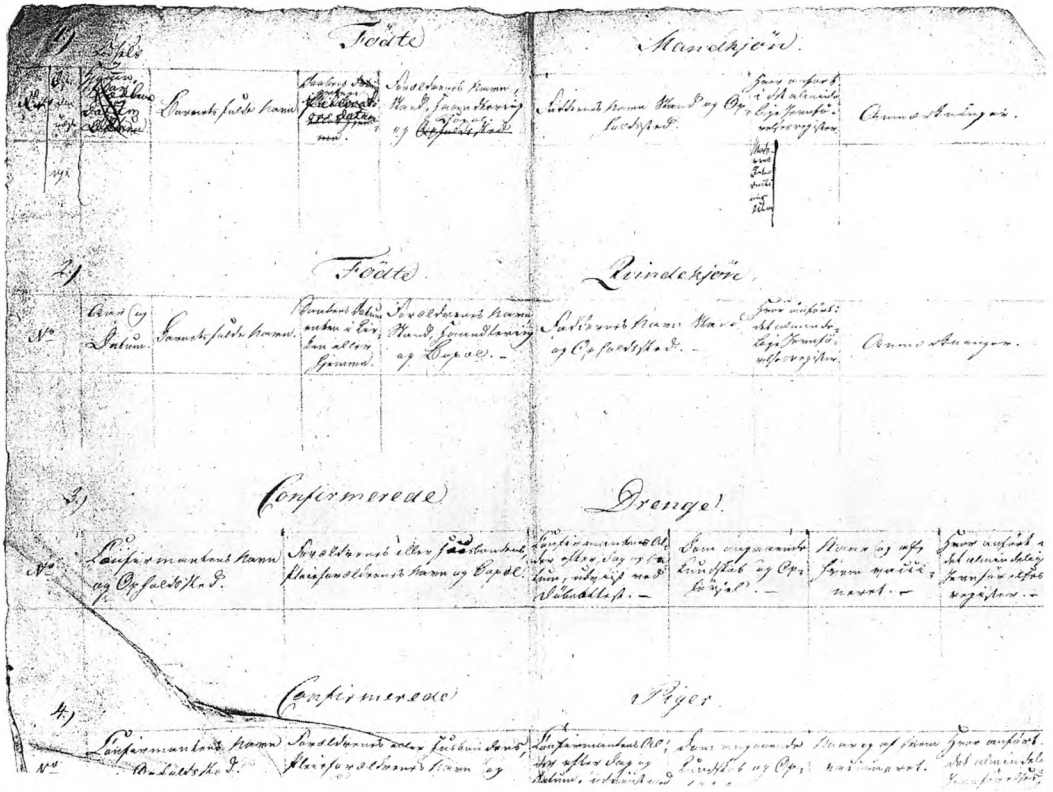 1.)
Födte
Mandkjön.
No
Barnets fulde Navn
Forældrenes Navn,
Stand, Haandtering
og
Fadderens Navn Stand og Op-
holdssted.
Hvor anført
i det almind-
lige Jevnfö-
relsesregister
Anmærkninger.
2.)
Födte
Qvindekjön.
No
Aar og
Datum.
Barnets fulde Navn.
Daabens Datum
enten i Kir-
ken eller
hjemme.
Forældrenes Navn
Stand, Haandtering
og Bopæl. –
Faddernes Navn Stand
og Opholdssted. –
Hvor anført i
det alminde-
lige Jevnfö-
relsesregister.
Anmærkninger.
3.)
Confirmerede
Drenge.
No
Confirmantens Navn
og Opholdssted.
Forældrenes eller Huusbondens,
Pleieforældrenes Navn og Bopæl.
Confirmantens Al-
der efter Dag og Da-
tum, udviist ved
Döbeattest. –
Dom angaaende
Kundskab og Op-
försel. –
Naar og af
hvem vacci-
neret. –
Hvor anført i
det almindelig
Jevnførelses
register. –
4.)
Confirmerede
Piger
No
Confirmantens Navn
Opholdssted.
Forældrenes eller Huusbondens,
Pleieforældrenes Navn og
Confirmantens Al-
der efter Dag og
Datum, udviist ved
Dom angaaende
Kundskab og Op-
Naar og af hvem
vaccineret.
Hvor anført i
det almindel
Jevnførelses